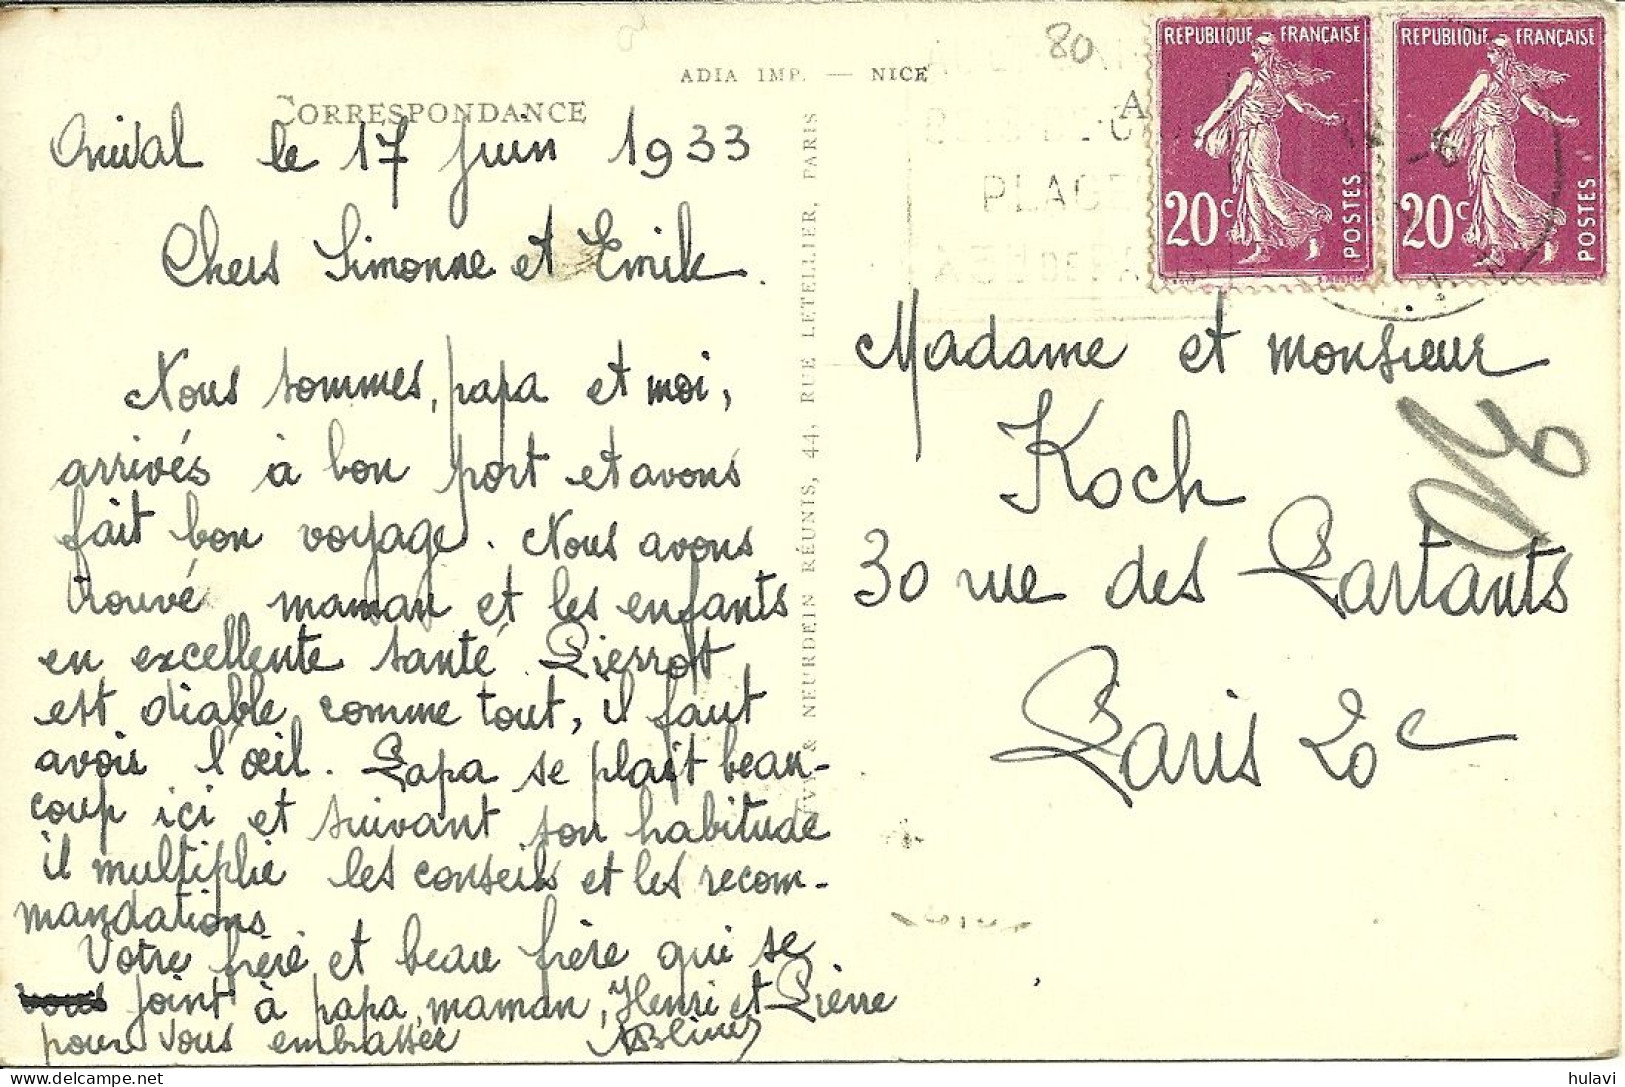 80
ADIA IMP. — NICE
CORRESPONDANCE
A
RÉPUBLIQUE FRANÇAISE
20c
POSTES
RÉPUBLIQUE FRANÇAISE
20c
POSTES
PLAGE
Onival le 17 juin 1933
Chers Simonne et Emile.
Nous sommes, papa et moi,
arrivés à bon port et avons
fait bon voyage. Nous avons
trouvé maman et les enfants
en excellente santé. Pierrot
est diable comme tout, il faut
avoir l'œil. Papa se plaît beau-
coup ici et suivant son habitude
il multiplie les conseils et les recom-
mandations
Votre frère et beau frère qui se
joint à papa, maman, Henri et Pierre
pour vous embrasser
NEURDEIN RÉUNIS, 44, RUE LETELLIER, PARIS
Madame et monsieur
Koch
30 rue des Partants
Paris 20e
hulavi